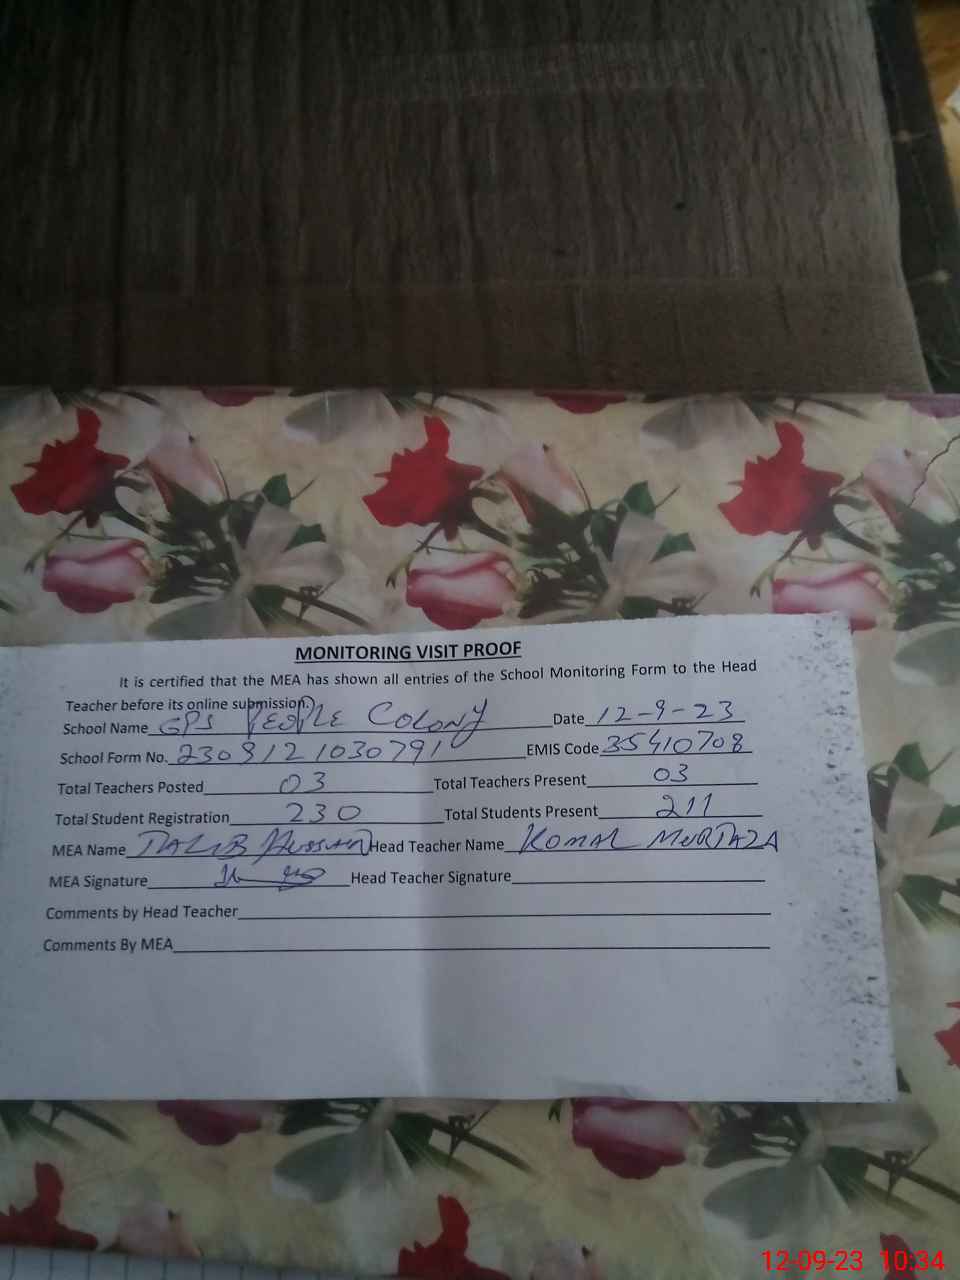 MONITORING VISIT PROOF
It is certified that the MEA has shown all entries of the School Monitoring Form to the Head
Teacher before its online submission.
School Name GPS PEOPLE COLONY Date 12-9-23
School Form No. 230912 1030791 EMIS Code 35410708
Total Teachers Posted 03 Total Teachers Present 03
Total Student Registration 230 Total Students Present 211
MEA Name TALIB HUSSAIN Head Teacher Name KOMAL MURTAZA
MEA Signature Head Teacher Signature
Comments by Head Teacher
Comments By MEA
12-09-23 10:34